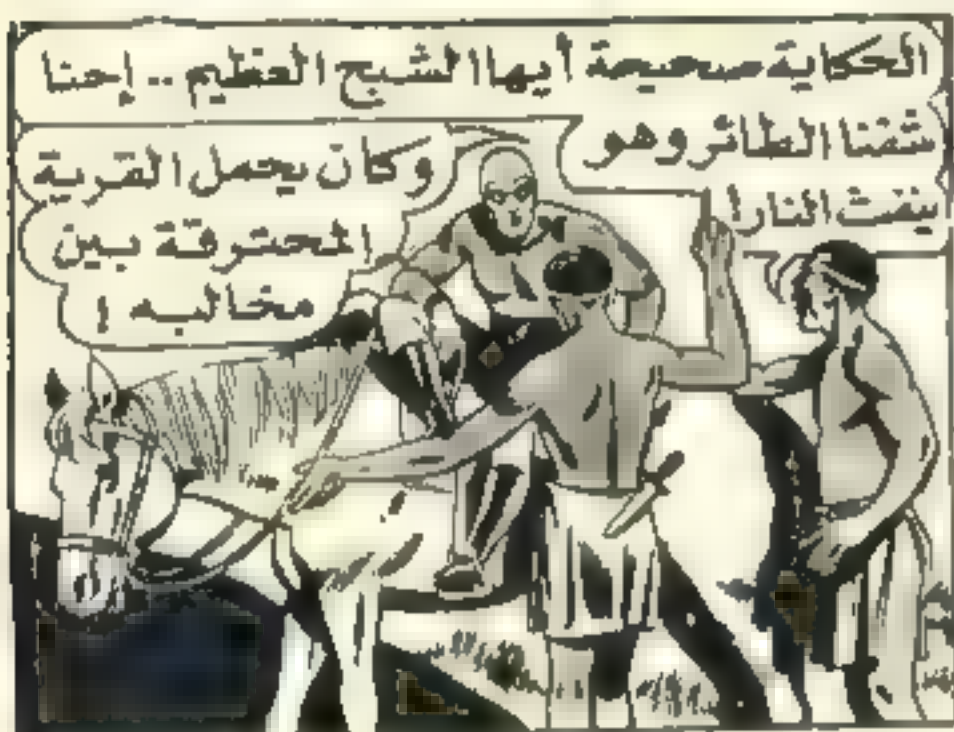 الحكاية صحيحة أيها الشبح العظيم .. إحنا
شفنا الطائر وهو
ينفث النار !
وكان يحمل القرية
المحترقة بين
مخالبه !